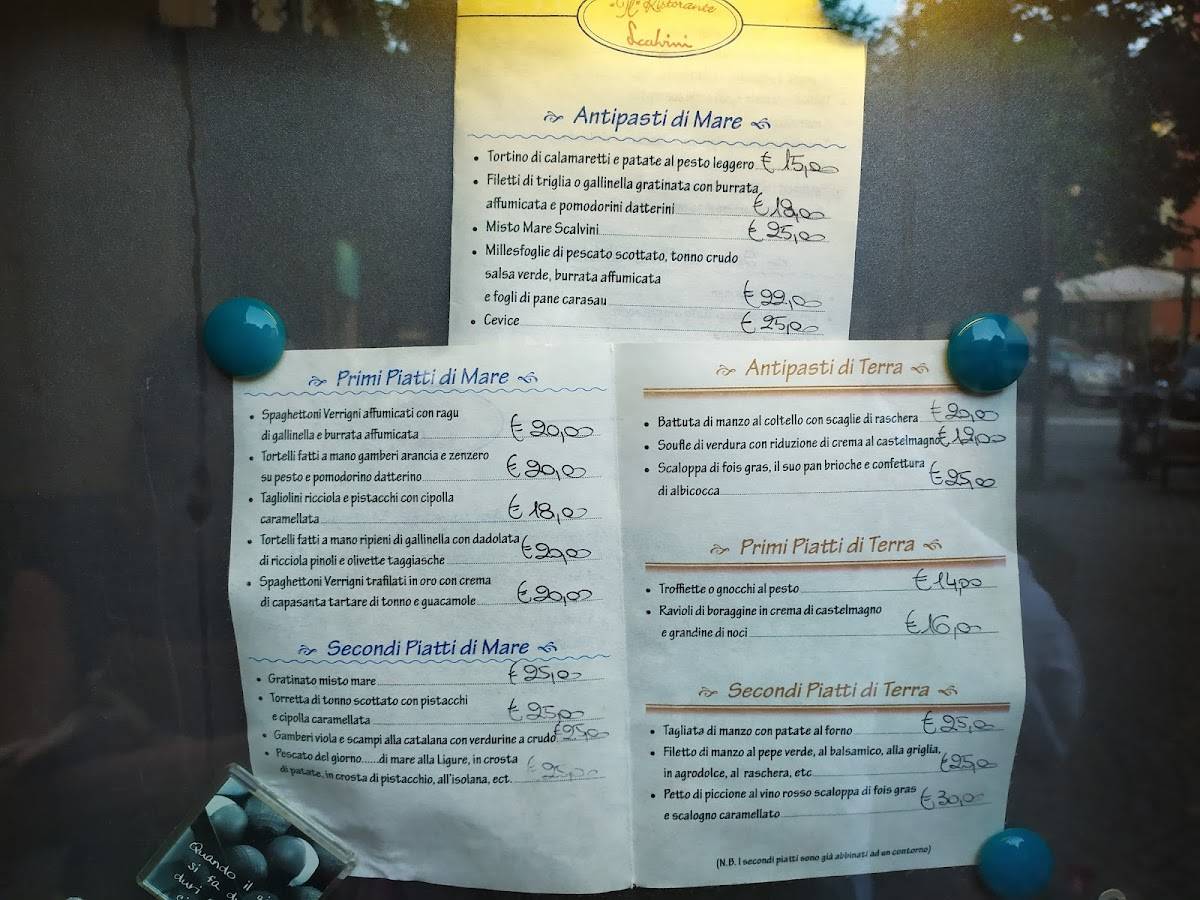 "Il" Ristorante
Scalvini
Antipasti di Mare
• Tortino di calamaretti e patate al pesto leggero € 15,00
• Filetti di triglia o gallinella gratinata con burrata
affumicata e pomodorini datterini € 18,00
• Misto Mare Scalvini € 25,00
• Millesfoglie di pescato scottato, tonno crudo
salsa verde, burrata affumicata
e fogli di pane carasau € 22,00
• Cevice € 25,00
Primi Piatti di Mare
• Spaghettoni Verrigni affumicati con ragu
di gallinella e burrata affumicata € 20,00
• Tortelli fatti a mano gamberi arancia e zenzero
su pesto e pomodorino datterino € 20,00
• Tagliolini ricciola e pistacchi con cipolla
caramellata € 18,00
• Tortelli fatti a mano ripieni di gallinella con dadolata
di ricciola pinoli e olivette taggiasche € 20,00
• Spaghettoni Verrigni trafilati in oro con crema
di capasanta tartare di tonno e guacamole € 20,00
Secondi Piatti di Mare
• Gratinato misto mare € 25,00
• Torretta di tonno scottato con pistacchi
e cipolla caramellata € 25,00
• Gamberi viola e scampi alla catalana con verdurine a crudo € 25,00
• Pescato del giorno......di mare alla Ligure, in crosta
di patate, in crosta di pistacchio, all'isolana, ect. € 25,00
Antipasti di Terra
• Battuta di manzo al coltello con scaglie di raschera € 20,00
• Soufle di verdura con riduzione di crema al castelmagno € 12,00
• Scaloppa di fois gras, il suo pan brioche e confettura
di albicocca € 25,00
Primi Piatti di Terra
• Troffiette o gnocchi al pesto € 14,00
• Ravioli di boraggine in crema di castelmagno
e grandine di noci € 16,00
Secondi Piatti di Terra
• Tagliata di manzo con patate al forno € 25,00
• Filetto di manzo al pepe verde, al balsamico, alla griglia,
in agrodolce, al raschera, etc € 25,00
• Petto di piccione al vino rosso scaloppa di fois gras
e scalogno caramellato € 30,00
(N.B. I secondi piatti sono già abbinati ad un contorno)
Quando il
si fa
duri